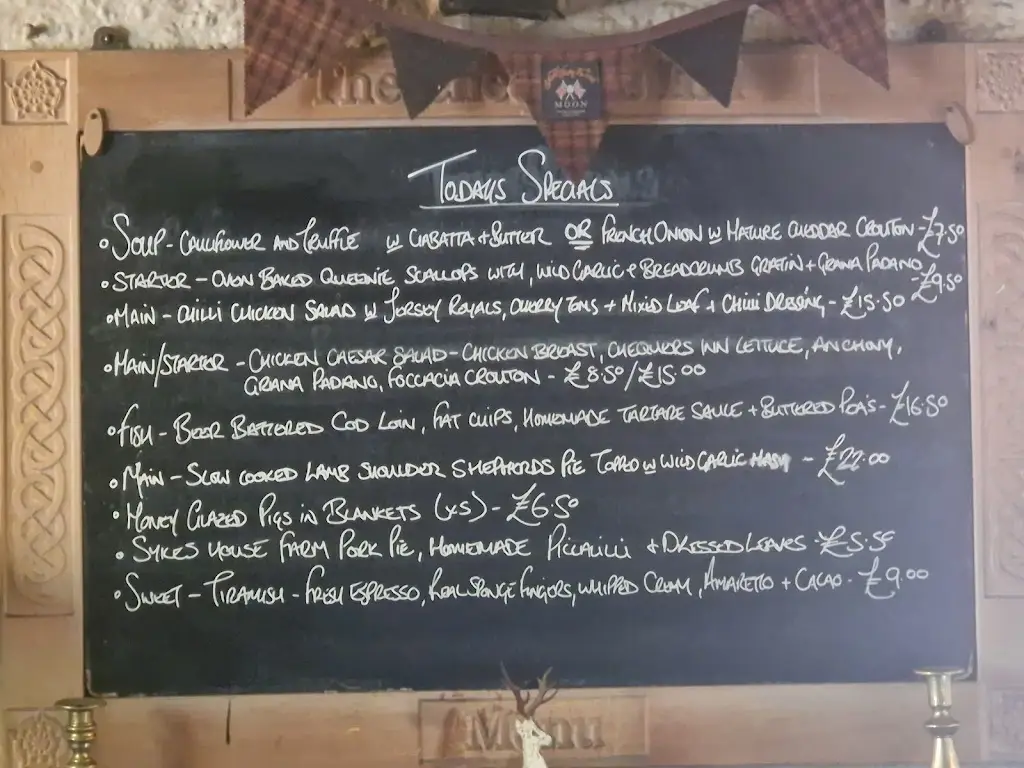 The
MOON
TODAYS SPECIALS
• SOUP - CAULIFLOWER AND TRUFFLE W CIABATTA + BUTTER OR FRENCH ONION W MATURE CHEDDAR CROUTON - £7.50
• STARTER - OVEN BAKED QUEENIE SCALLOPS WITH, WILD GARLIC & BREADCRUMB GRATIN + GRANA PADANO - £9.50
• MAIN - CHILLI CHICKEN SALAD W JERSEY ROYALS, CHERRY TOMS + MIXED LEAF + CHILLI DRESSING - £15.50
• MAIN/STARTER - CHICKEN CAESAR SALAD - CHICKEN BREAST, CHEQUERS INN LETTUCE, ANCHOVY,
GRANA PADANO, FOCCACIA CROUTON - £8.50/£15.00
• FISH - BEER BATTERED COD LOIN, FAT CHIPS, HOMEMADE TARTARE SAUCE + BUTTERED PEA'S - £16.50
• MAIN - SLOW COOKED LAMB SHOULDER SHEPHERDS PIE TOPPED W WILD GARLIC MASH - £22.00
• HONEY GLAZED PIGS IN BLANKETS (x5) - £6.50
• SYKES HOUSE FARM PORK PIE, HOMEMADE PICCALILLI + DRESSED LEAVES - £5.55
• SWEET - TIRAMISU - FRESH ESPRESSO, REAL SPONGE FINGERS, WHIPPED CREAM, AMARETTO + CACAO - £9.00
Menu